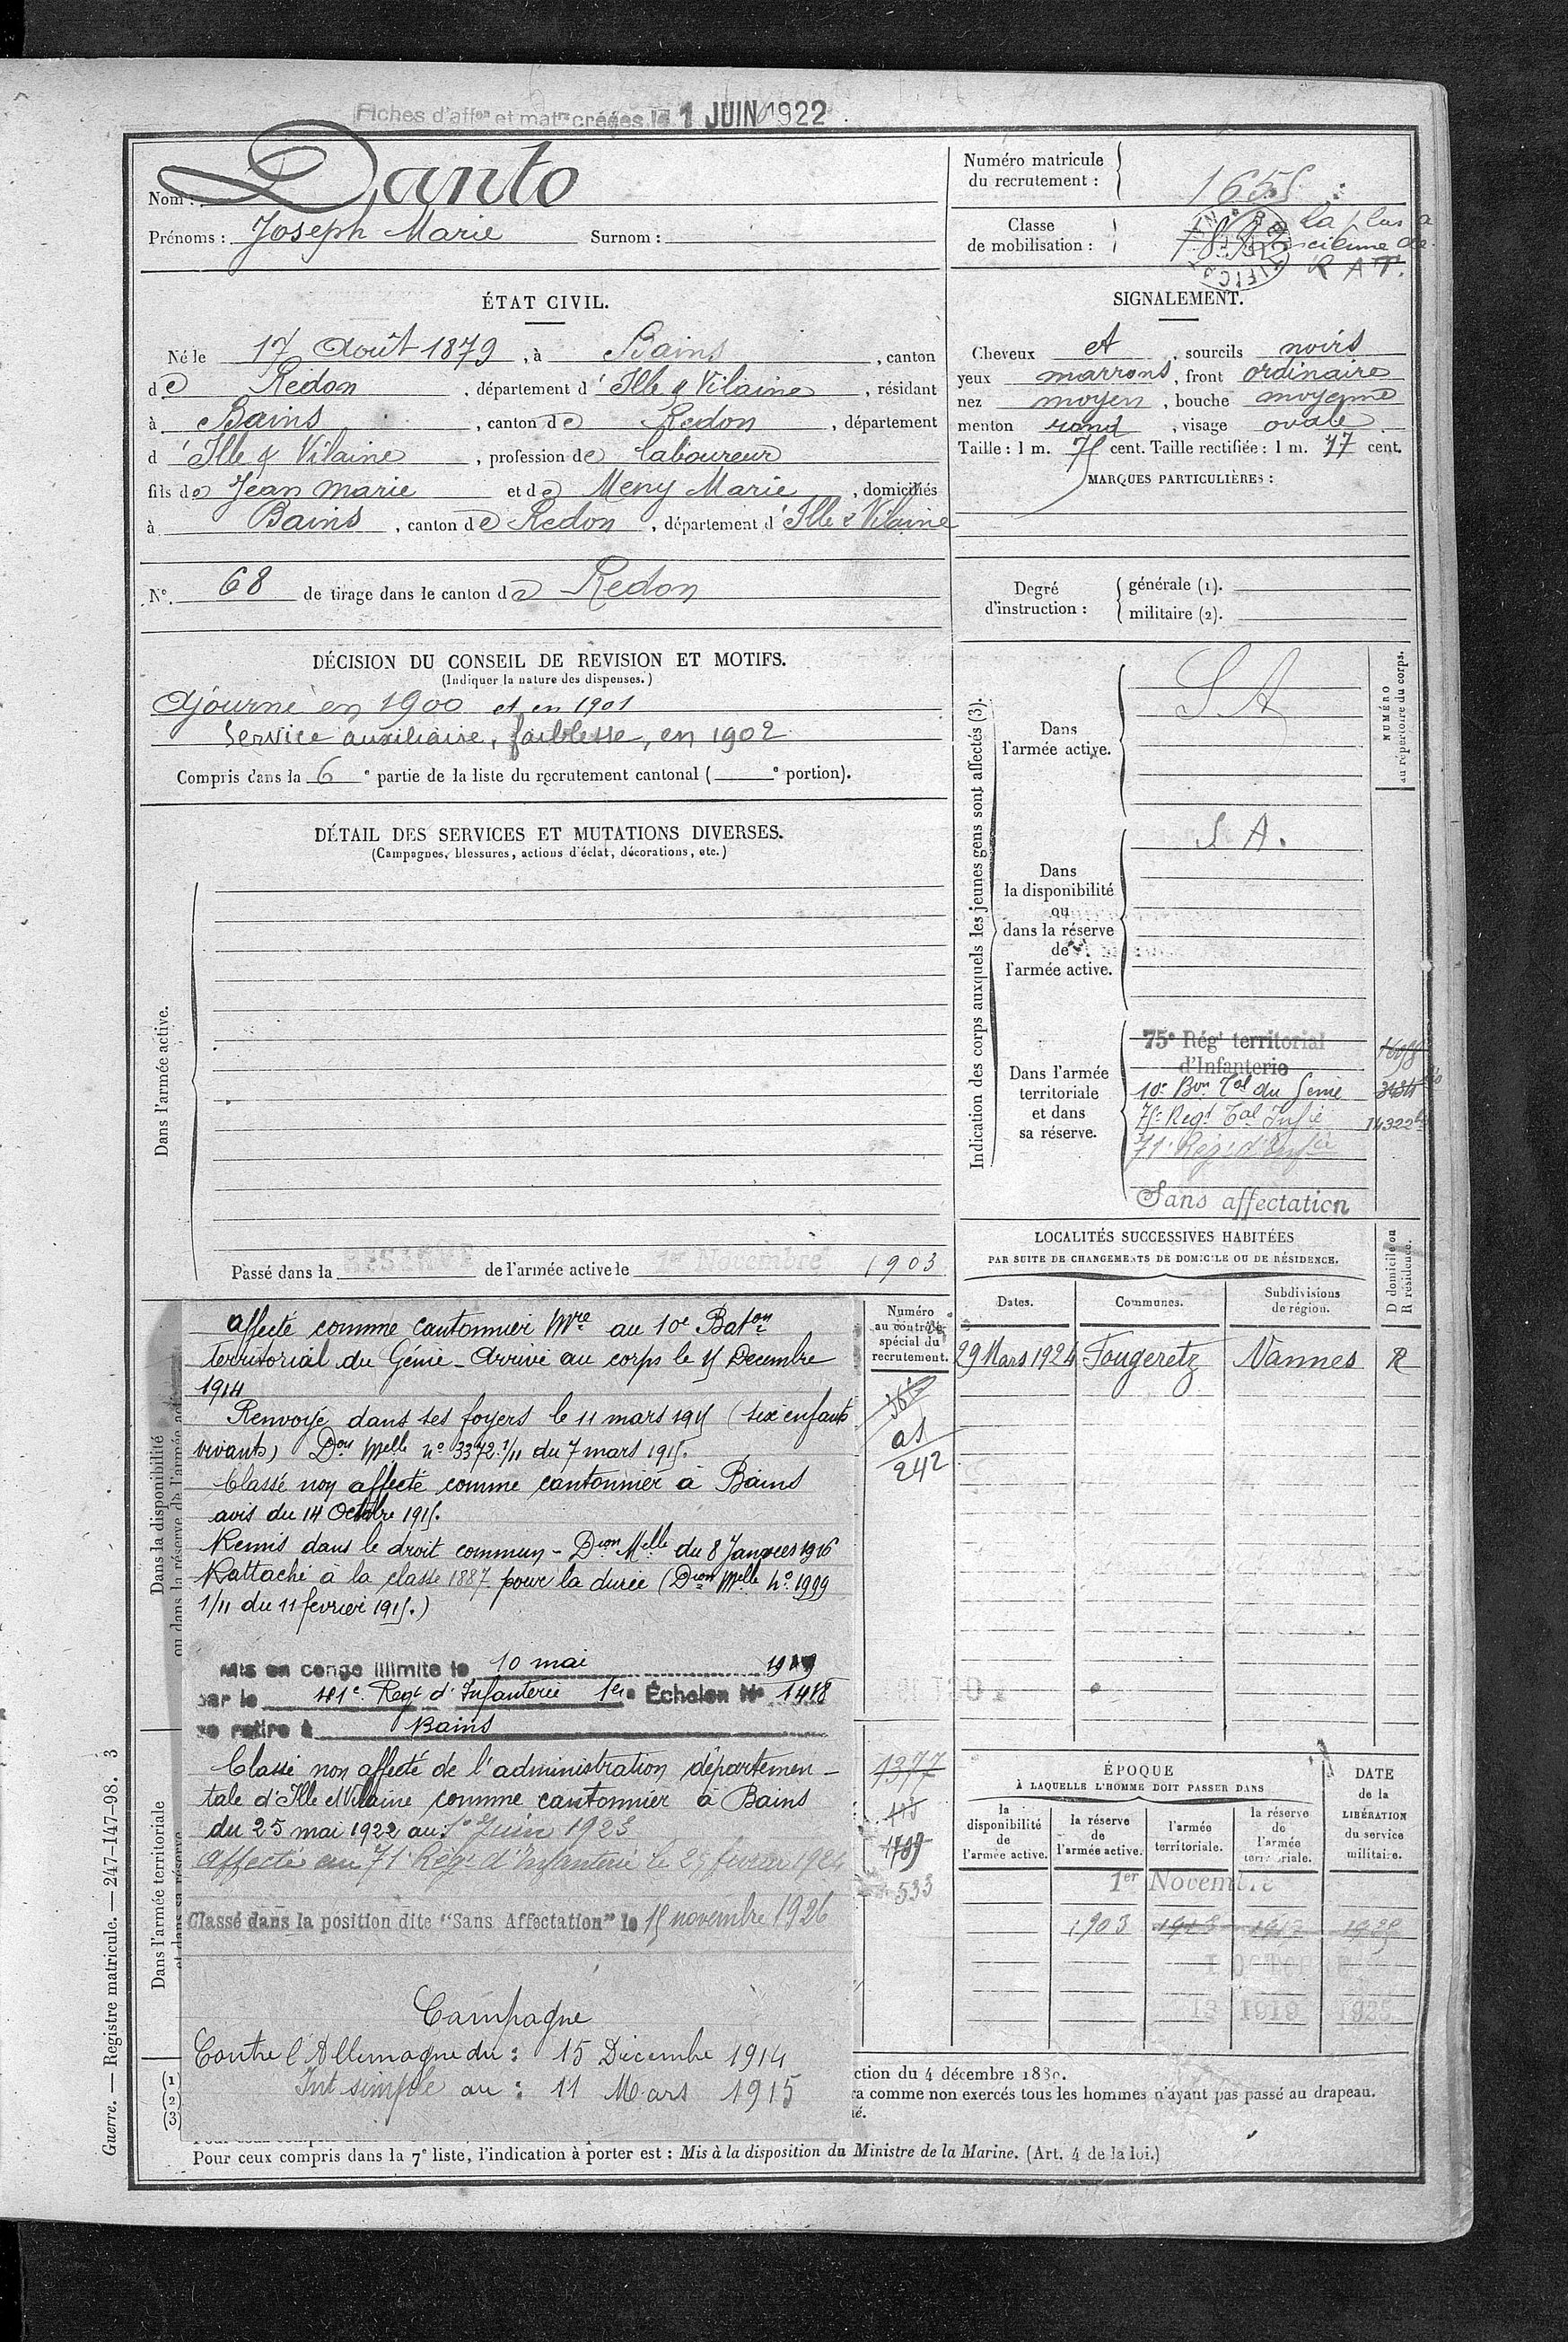 Fiches d'affon et matre créées le 1 JUIN 1922
Nom : Danto
Prénoms : Joseph Marie Surnom :
ÉTAT CIVIL.
Né le 17 Août 1879, à Bains, canton
de Redon, département d'Ille & Vilaine, résidant
à Bains, canton de Redon, département
d'Ille & Vilaine, profession de laboureur
fils de Jean Marie et de Meny Marie, domiciliés
à Bains, canton de Redon, département d'Ille & Vilaine
N° 68 de tirage dans le canton de Redon
DÉCISION DU CONSEIL DE REVISION ET MOTIFS.
(Indiquer la nature des dispenses.)
Ajourné en 1900 et en 1901
Service auxiliaire, faiblesse, en 1902
Compris dans la 6e partie de la liste du recrutement cantonal ( e portion).
DÉTAIL DES SERVICES ET MUTATIONS DIVERSES.
(Campagnes, blessures, actions d'éclat, décorations, etc.)
Dans l'armée active.
Passé dans la RÉSERVE de l'armée active le 1er Novembre 1903
Dans la disponibilité
ou dans la réserve de l'armée active
affecté comme cantonnier Mre au 10e Baton
territorial du Génie - Arrivé au corps le 15 Décembre
1914
Renvoyé dans ses foyers le 11 mars 1915 (six enfants
vivants) Don Melle n° 3372 1/11 du 7 mars 1915.
Classé non affecté comme cantonnier à Bains
avis du 14 Octobre 1915.
Remis dans le droit commun - Dion Melle du 8 Janvier 1916
Rattaché à la classe 1887 pour la durée (Dion Melle n° 1999
1/11 du 11 février 1915.)
Mis en congé illimité le 10 mai 1919
par le 41e Regt d'Infanterie 1er Échelon N° 1418
se retire à Bains
Classé non affecté de l'administration départemen-
tale d'Ille et Vilaine comme cantonnier à Bains
du 25 mai 1922 au 1er Juin 1923
Affecté au 71e Régt d'Infanterie le 25 février 1924
Classé dans la position dite "Sans Affectation" le 15 novembre 1926
Dans l'armée territoriale
et dans sa réserve
Campagne
Contre l'Allemagne du : 15 Décembre 1914
Int simple au : 11 Mars 1915
Numéro
au contrôle
spécial du
recrutement.
as
242
1377
533
Numéro matricule
du recrutement : 1655
Classe
de mobilisation : La plus a
ncienne de
R A T.
SIGNALEMENT.
Cheveux et, sourcils noirs
yeux marrons, front ordinaire
nez moyen, bouche moyenne
menton rond, visage ovale
Taille : 1 m. 75 cent. Taille rectifiée : 1 m. 77 cent.
MARQUES PARTICULIÈRES :
Degré
d'instruction :
générale (1).
militaire (2).
Indication des corps auxquels les jeunes gens sont affectés (3).
NUMÉRO
au répertoire du corps.
Dans
l'armée active.
S A
Dans
la disponibilité
ou
dans la réserve
de
l'armée active.
S A.
Dans l'armée
territoriale
et dans
sa réserve.
75e Régt territorial
d'Infanterie
10e Bon Tal du Génie
75e Regt Tal Infie 14322
71e Régt d'Infie
Sans affectation
LOCALITÉS SUCCESSIVES HABITÉES
PAR SUITE DE CHANGEMENTS DE DOMICILE OU DE RÉSIDENCE.
Dates. Communes. Subdivisions
de région.
D domicile ou
R résidence.
29 Mars 1924 Fougeretz Vannes R
ÉPOQUE
À LAQUELLE L'HOMME DOIT PASSER DANS
la
disponibilité
de
l'armée active.
la réserve
de
l'armée active.
l'armée
territoriale.
la réserve
de
l'armée
territoriale.
DATE
de la
LIBÉRATION
du service
militaire.
1er Novembre
1903 1913 1919 1929
1 OCTOBRE
1919
ction du 4 décembre 1889.
ra comme non exercés tous les hommes n'ayant pas passé au drapeau.
(1)
(2)
(3)
Pour ceux compris dans la 7e liste, l'indication à porter est : Mis à la disposition du Ministre de la Marine. (Art. 4 de la loi.)
Guerre. — Registre matricule. — 247-147-98. 3